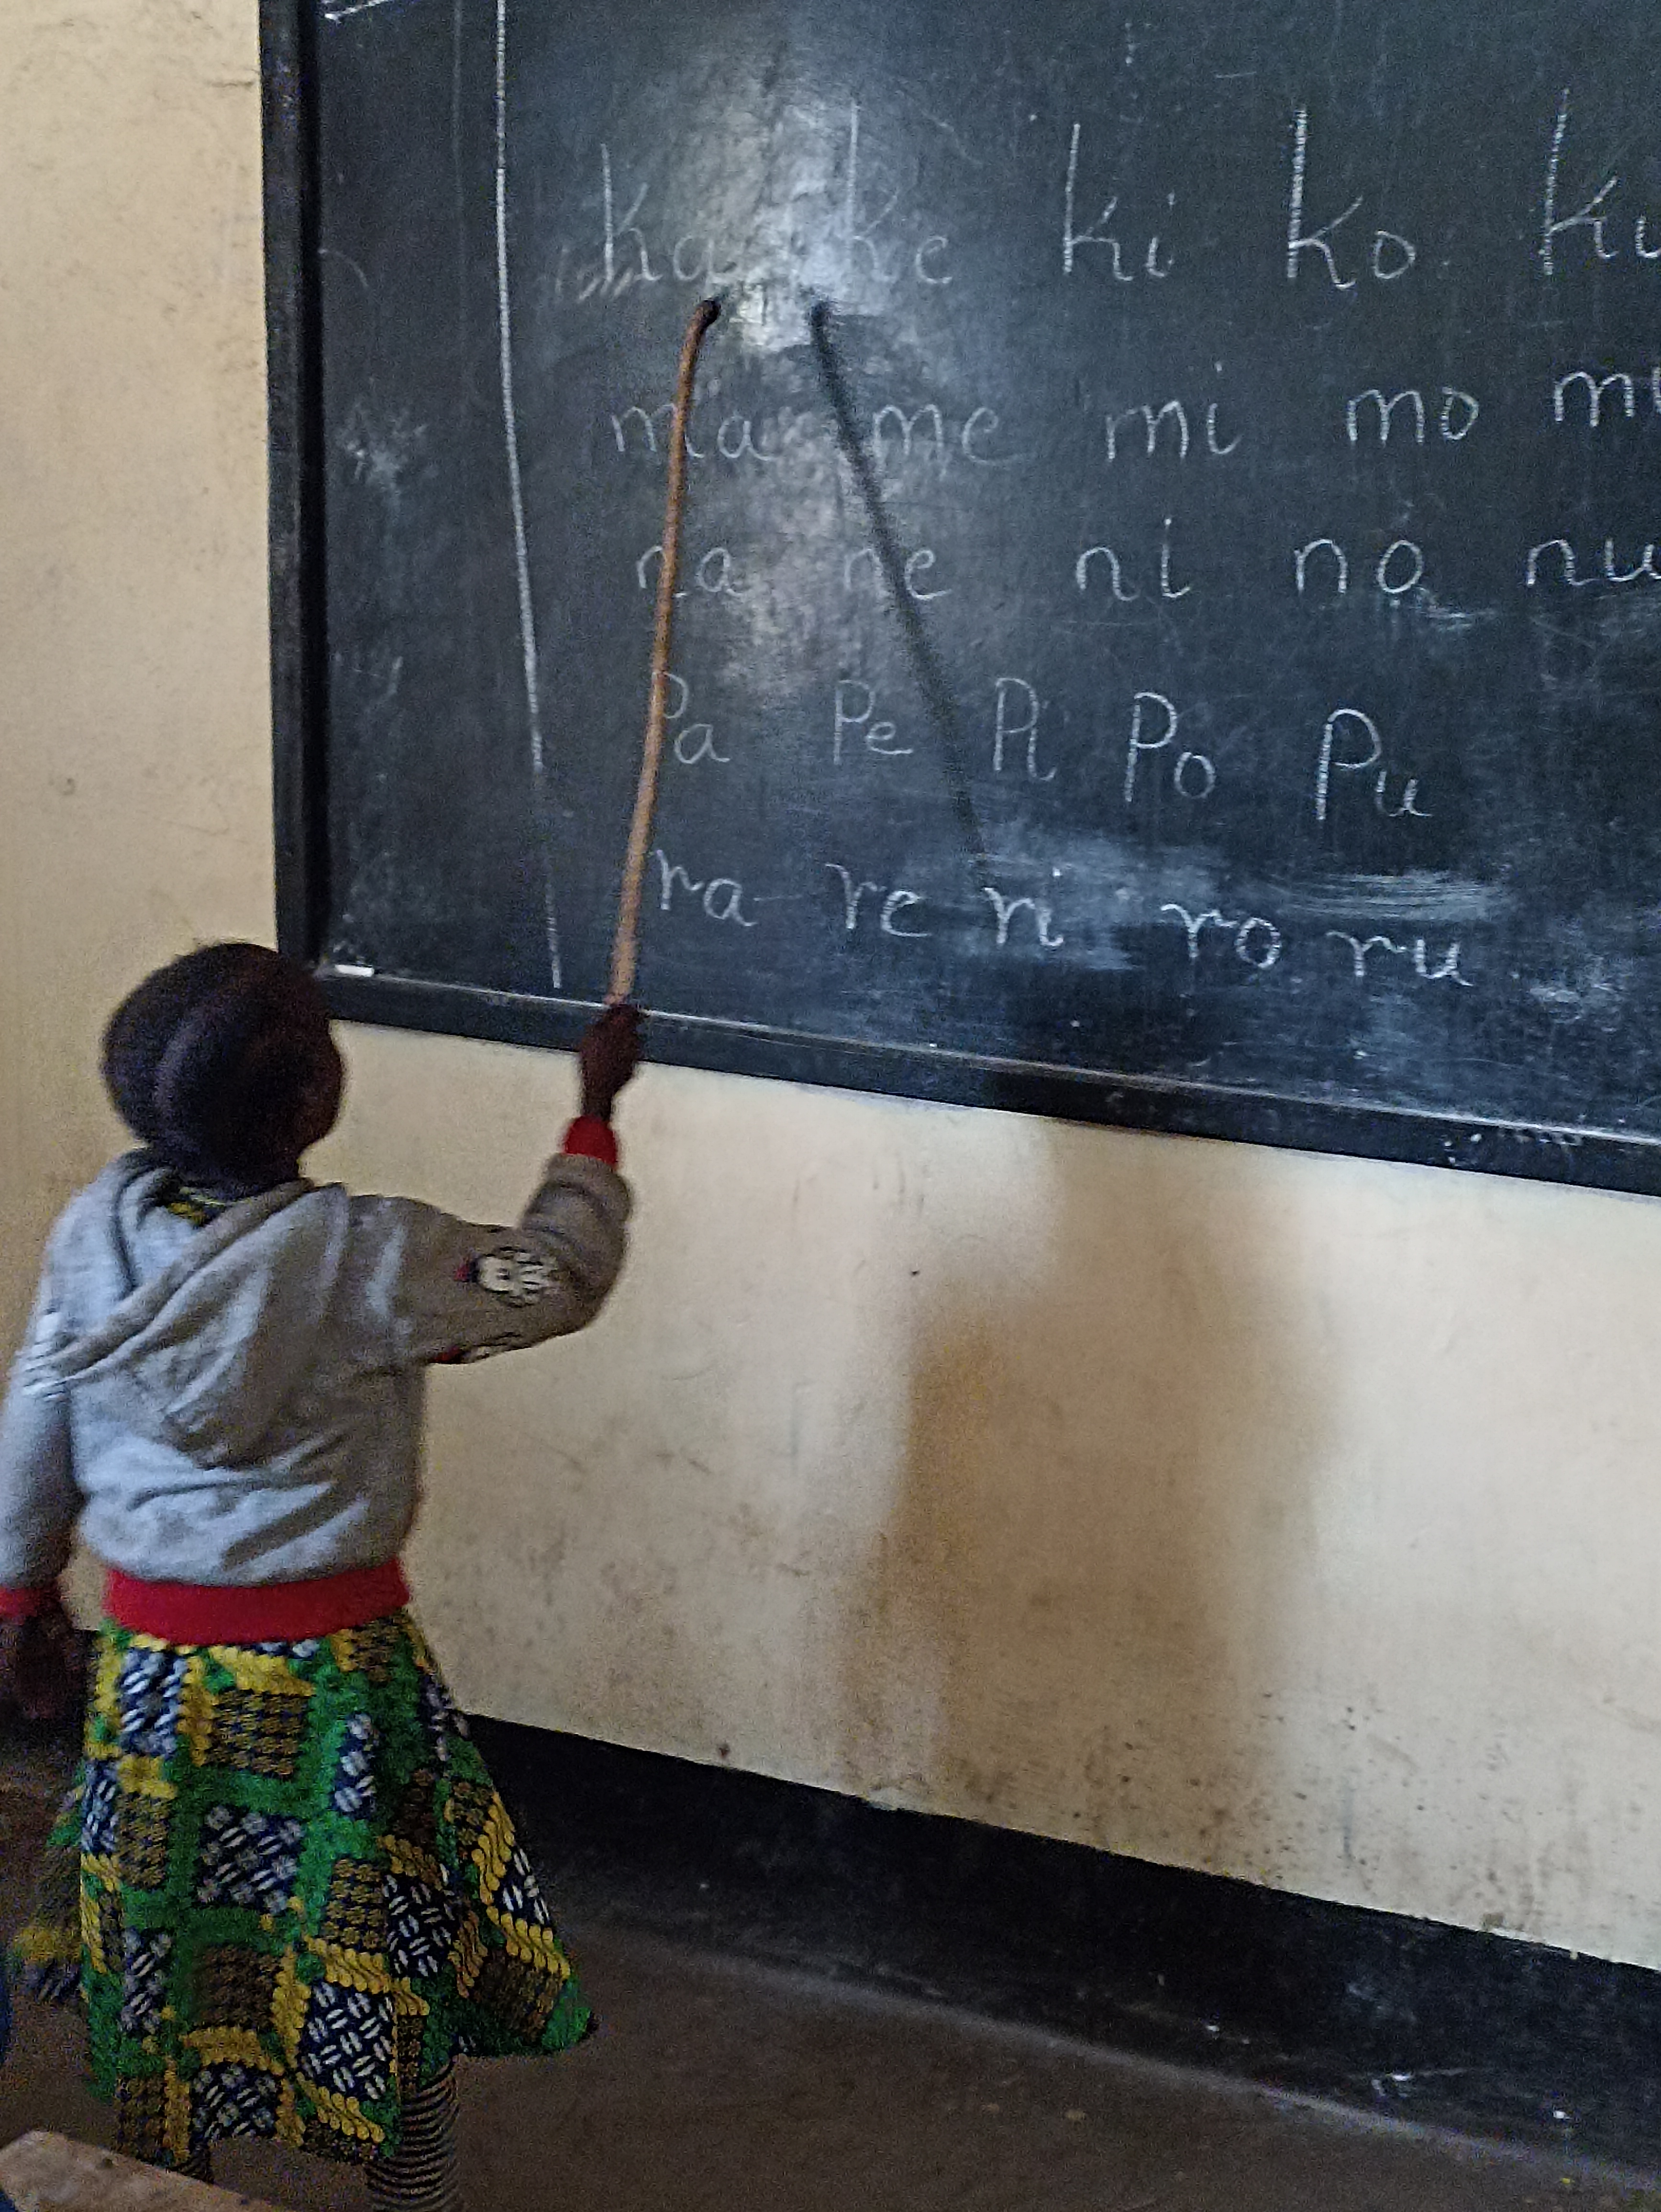 ka ke ki ko ku
ma me mi mo mu
na ne ni no nu
Pa Pe Pi Po Pu
ra re ri ro ru